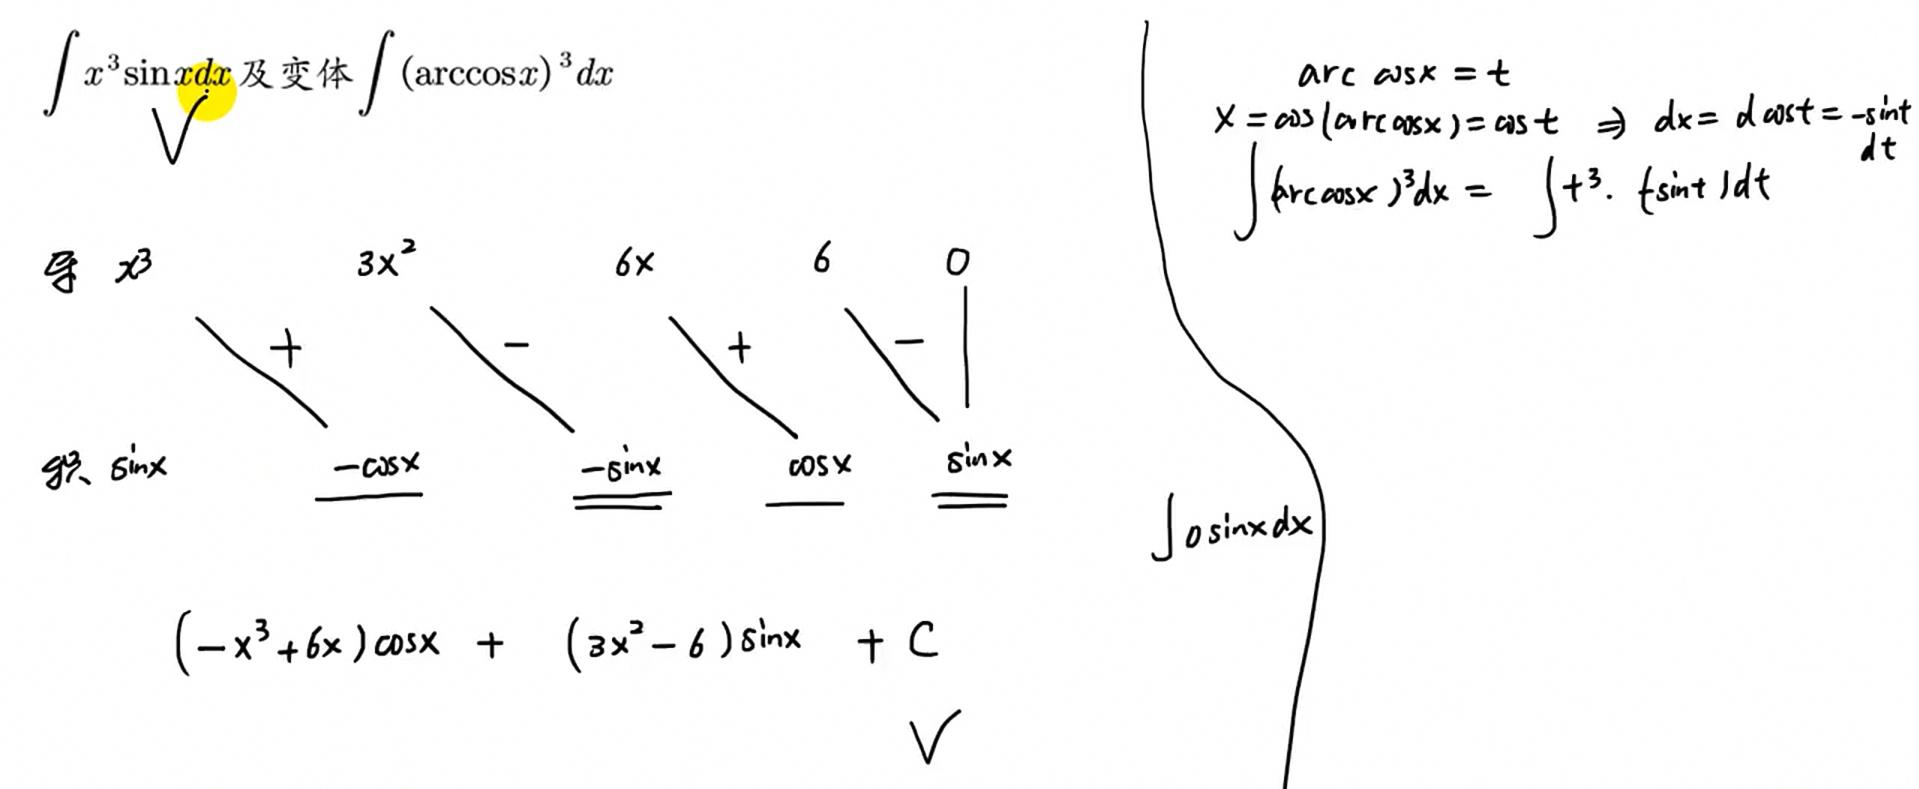 ∫ x³ sin x dx 及变体 ∫ (arccos x)³ dx
导 x³ 3x² 6x 6 0
+ - + -
积 sinx -cosx -sinx cosx sinx
(-x³+6x)cosx + (3x²-6)sinx + C
arc cosx = t
x = cos(arccosx) = cos t ⇒ dx = d cost = -sint dt
∫(arccosx)³dx = ∫t³·(-sint)dt
∫0 sinx dx